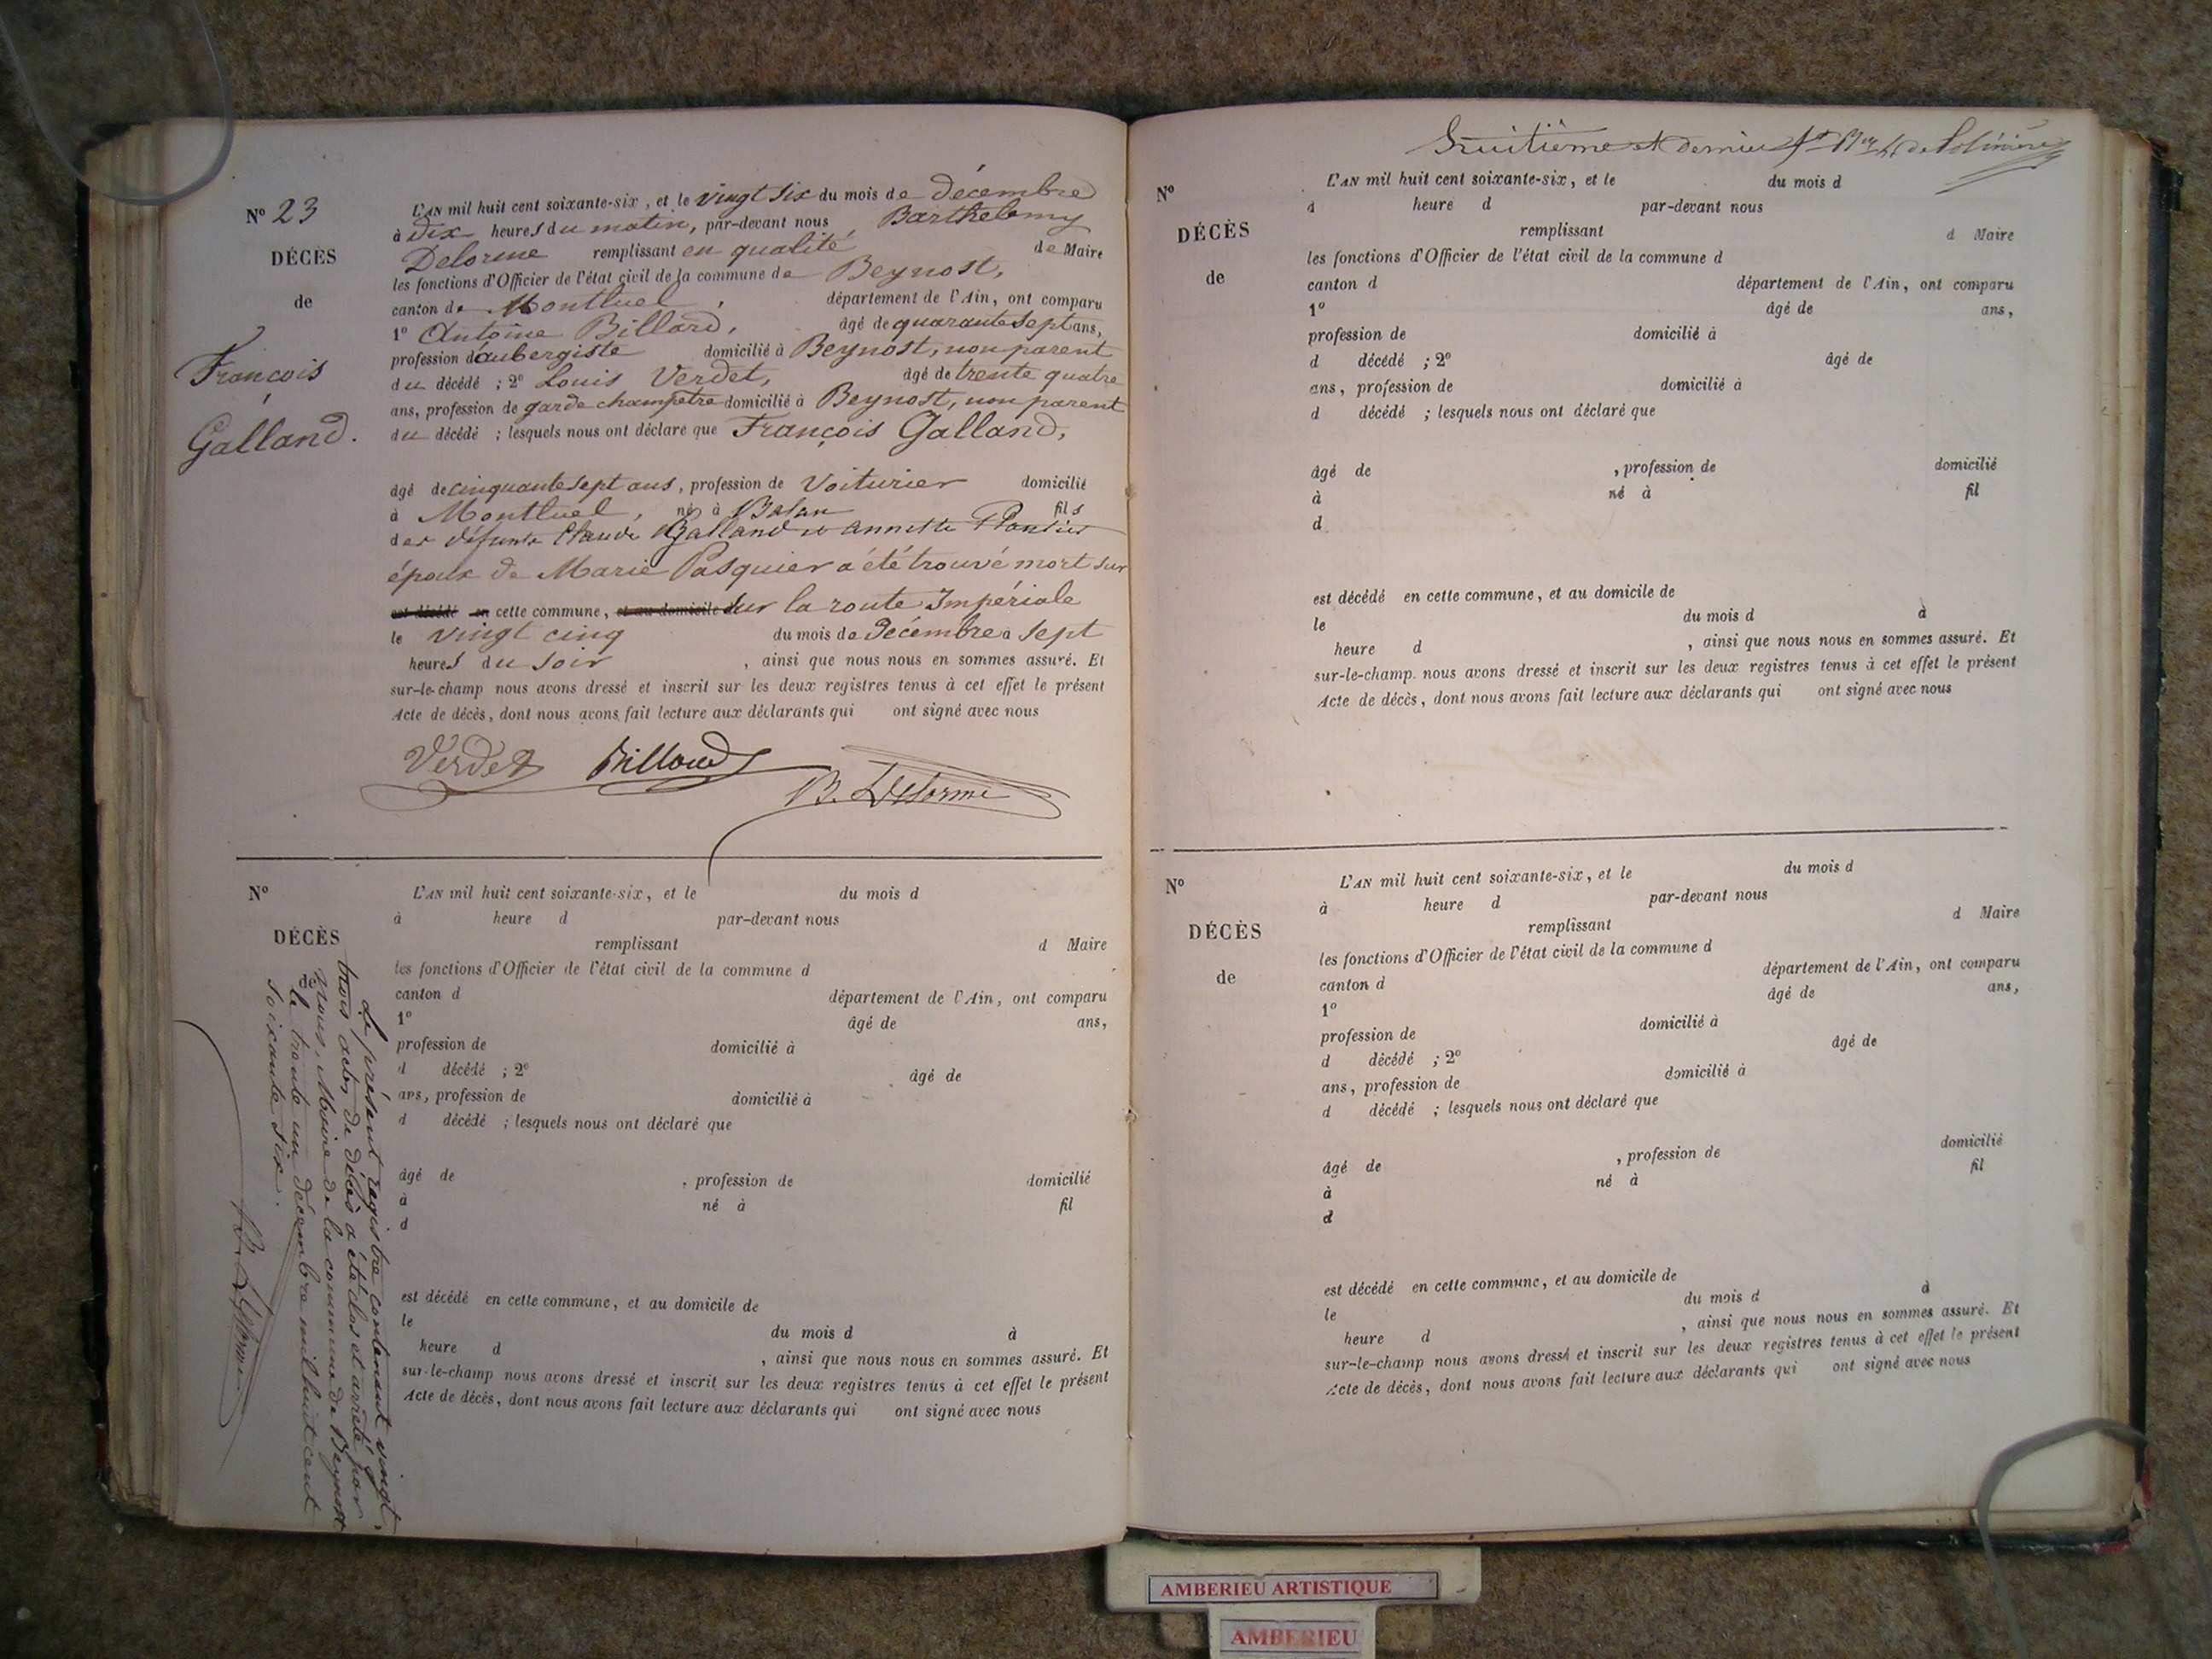 N° 23
DÉCÈS
de
François
Galland.
L'AN mil huit cent soixante-six, et le vingt six du mois de décembre
à dix heures du matin, par-devant nous Barthelemy
Delorme remplissant en qualité de Maire
les fonctions d'Officier de l'état civil de la commune de Beynost,
canton de Montluel, département de l'Ain, ont comparu
1° Antoine Billard, âgé de quarante sept ans,
profession d'aubergiste domicilié à Beynost, non parent
du décédé ; 2° Louis Verdet, âgé de trente quatre
ans, profession de garde champetre domicilié à Beynost, non parent
du décédé ; lesquels nous ont déclaré que François Galland,
âgé de cinquante sept ans, profession de Voiturier domicilié
à Montluel, né à Balan fils
des défunts Claude Galland et annette
époux de Marie Pasquier a été trouvé mort sur
est décédé en cette commune, et au domicile sur la route Impériale
le vingt cinq du mois de Décembre à sept
heures du soir , ainsi que nous nous en sommes assuré. Et
sur-le-champ nous avons dressé et inscrit sur les deux registres tenus à cet effet le présent
Acte de décès, dont nous avons fait lecture aux déclarants qui ont signé avec nous
Verdet Billard
B. Delorme
N°
DÉCÈS
de
L'AN mil huit cent soixante-six, et le du mois d
à heure d par-devant nous
remplissant d Maire
les fonctions d'Officier de l'état civil de la commune d
canton d département de l'Ain, ont comparu
1° âgé de ans,
profession de domicilié à
d décédé ; 2° âgé de
ans, profession de domicilié à
d décédé ; lesquels nous ont déclaré que
âgé de , profession de domicilié
à né à fil
d
est décédé en cette commune, et au domicile de
le du mois d à
heure d , ainsi que nous nous en sommes assuré. Et
sur-le-champ nous avons dressé et inscrit sur les deux registres tenus à cet effet le présent
Acte de décès, dont nous avons fait lecture aux déclarants qui ont signé avec nous
Le présent registre contenant vingt
trois actes de décès a été clos et arrêté par
nous, Maire de la commune de Beynost
le trente un décembre mil huit cent
soixante six.
B. Delorme
huitième et dernier
N°
DÉCÈS
de
L'AN mil huit cent soixante-six, et le du mois d
à heure d par-devant nous
remplissant d Maire
les fonctions d'Officier de l'état civil de la commune d
canton d département de l'Ain, ont comparu
1° âgé de ans,
profession de domicilié à
d décédé ; 2° âgé de
ans, profession de domicilié à
d décédé ; lesquels nous ont déclaré que
âgé de , profession de domicilié
à né à fil
d
est décédé en cette commune, et au domicile de
le du mois d à
heure d , ainsi que nous nous en sommes assuré. Et
sur-le-champ nous avons dressé et inscrit sur les deux registres tenus à cet effet le présent
Acte de décès, dont nous avons fait lecture aux déclarants qui ont signé avec nous
N°
DÉCÈS
de
L'AN mil huit cent soixante-six, et le du mois d
à heure d par-devant nous
remplissant d Maire
les fonctions d'Officier de l'état civil de la commune d
canton d département de l'Ain, ont comparu
1° âgé de ans,
profession de domicilié à
d décédé ; 2° âgé de
ans, profession de domicilié à
d décédé ; lesquels nous ont déclaré que
âgé de , profession de domicilié
à né à fil
d
est décédé en cette commune, et au domicile de
le du mois d à
heure d , ainsi que nous nous en sommes assuré. Et
sur-le-champ nous avons dressé et inscrit sur les deux registres tenus à cet effet le présent
Acte de décès, dont nous avons fait lecture aux déclarants qui ont signé avec nous
AMBERIEU ARTISTIQUE
AMBERIEU